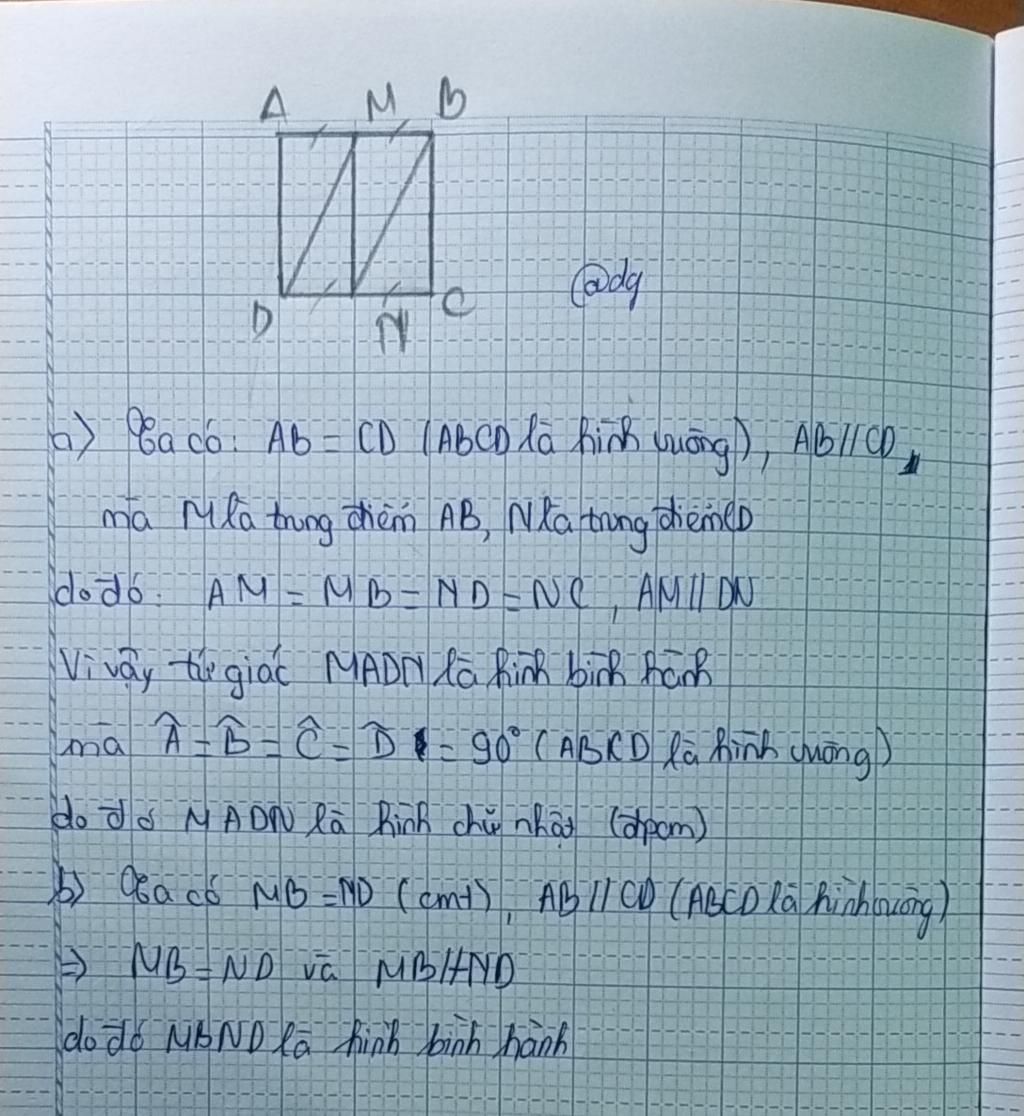 A M B
@dg
D N C
a) Ta có: AB = CD (ABCD là hình vuông), AB//CD,
mà M là trung điểm AB, N là trung điểm CD
do đó: AM = MB = ND = NC, AM // DN
Vì vậy tứ giác MADN là hình bình hành
mà Â = B̂ = Ĉ = D̂ = 90° (ABCD là hình vuông)
do đó MADN là hình chữ nhật (đpcm)
b) Ta có MB = ND (cmt), AB // CD (ABCD là hình vuông)
=> MB = ND và MB // ND
do đó MBND là hình bình hành